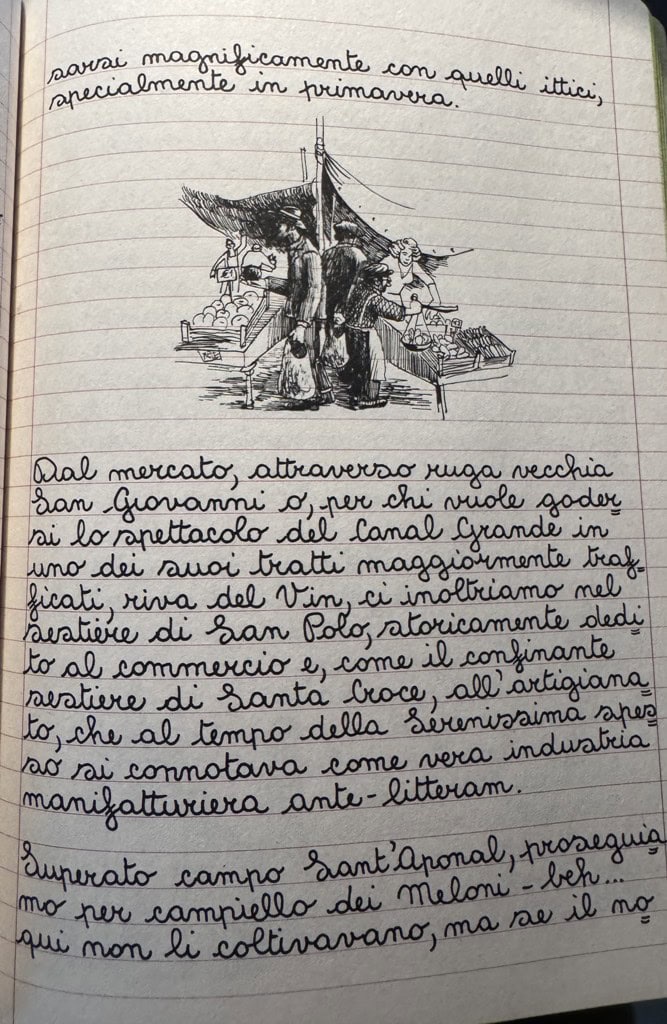 sarsi magnificamente con quelli ittici,
specialmente in primavera.
Dal mercato, attraverso ruga vecchia
San Giovanni o, per chi vuole goder=
si lo spettacolo del Canal Grande in
uno dei suoi tratti maggiormente traf=
ficati, riva del Vin, ci inoltriamo nel
sestiere di San Polo, storicamente dedi=
to al commercio e, come il confinante
sestiere di Santa Croce, all'artigiana=
to, che al tempo della Serenissima spes=
so si connotava come vera industria
manifatturiera ante-litteram.
Superato campo Sant'Aponal, prosegui=a=
mo per campiello dei Meloni - beh...
qui non li coltivavano, ma se il no=